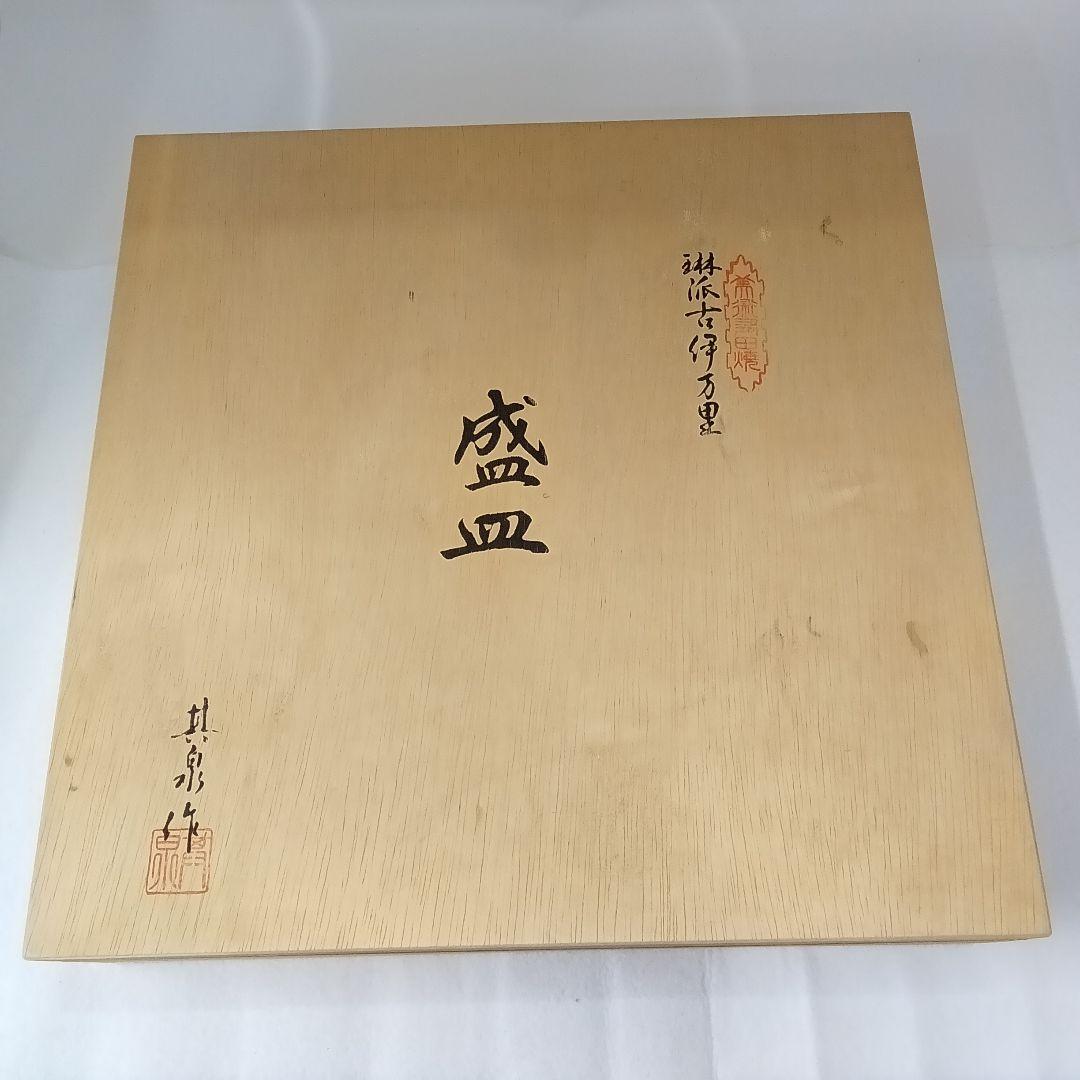 琳派古伊万里
盛皿
其泉作
其泉